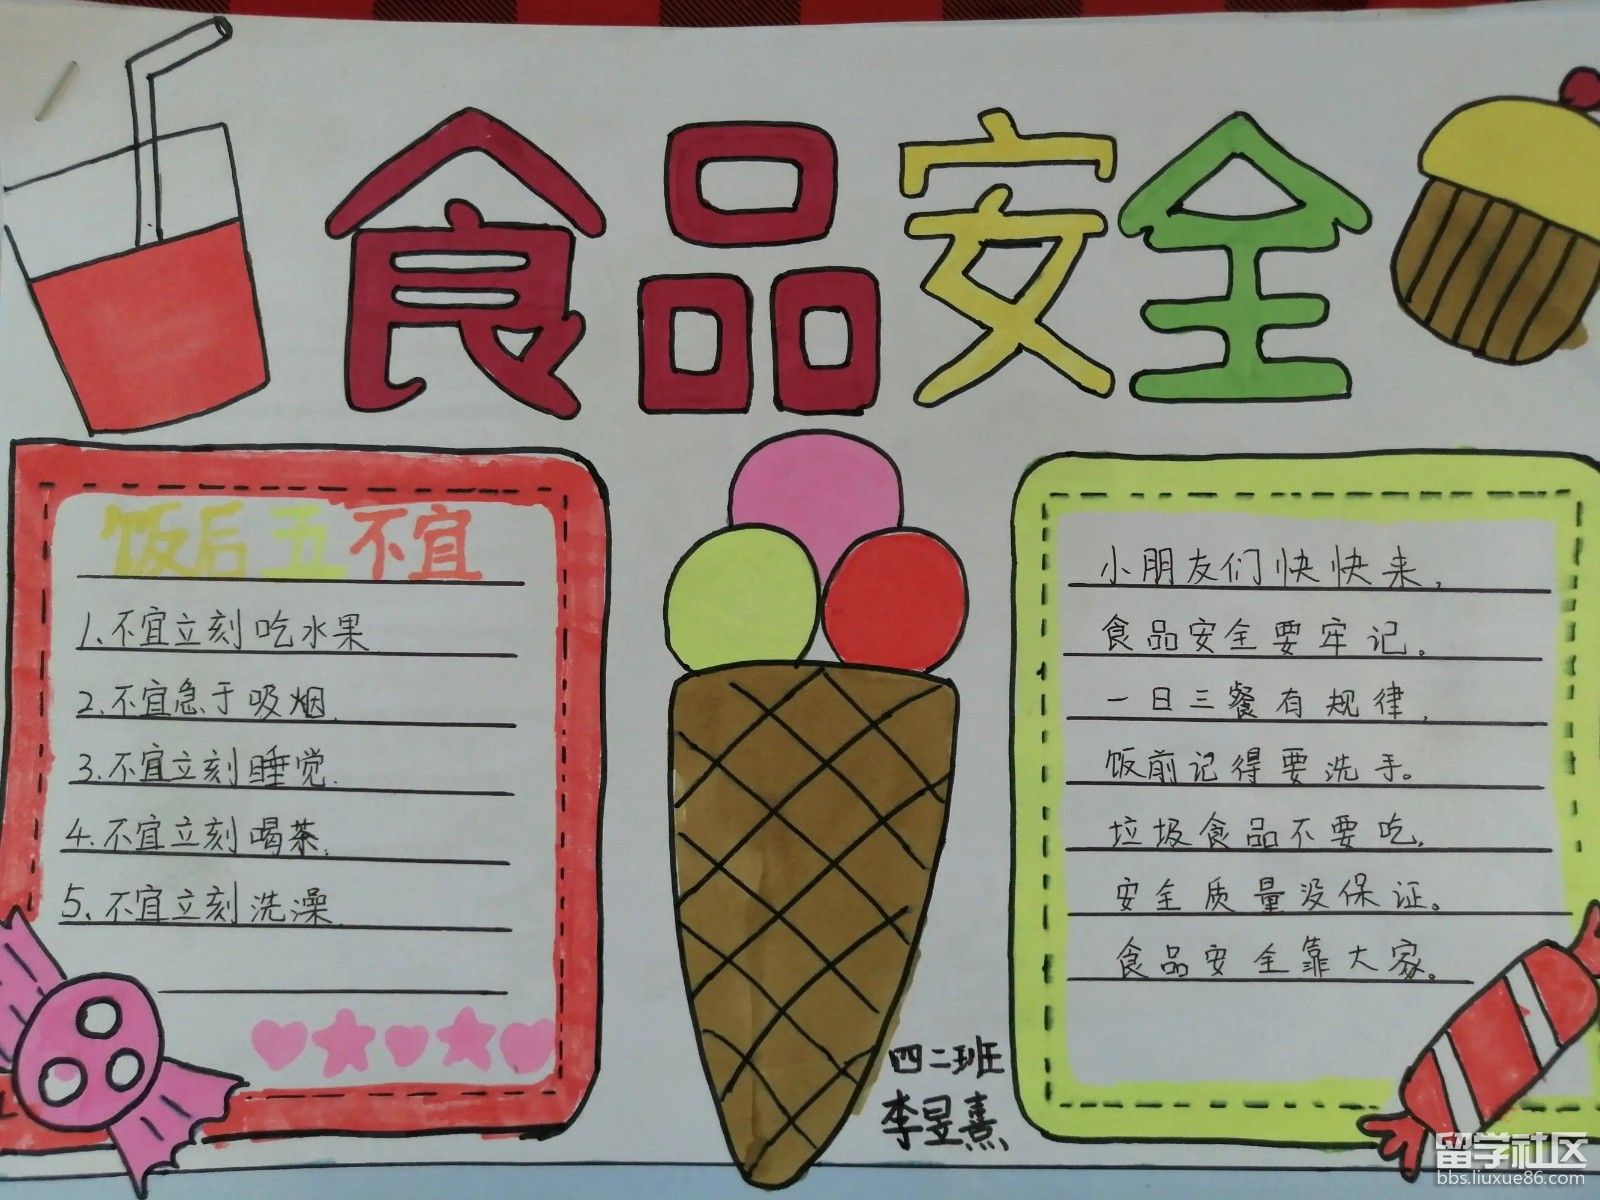 食品安全
饭后五不宜
1、不宜立刻吃水果
2.不宜急于吸烟.
3.不宜立刻睡觉.
4.不宜立刻喝茶.
5、不宜立刻洗澡
小朋友们快快来，
食品安全要牢记。
一日三餐有规律，
饭前记得要洗手。
垃圾食品不要吃，
安全质量没保证。
食品安全靠大家。
四二班
李昱熹
留学社区
bbs.liuxue86.com